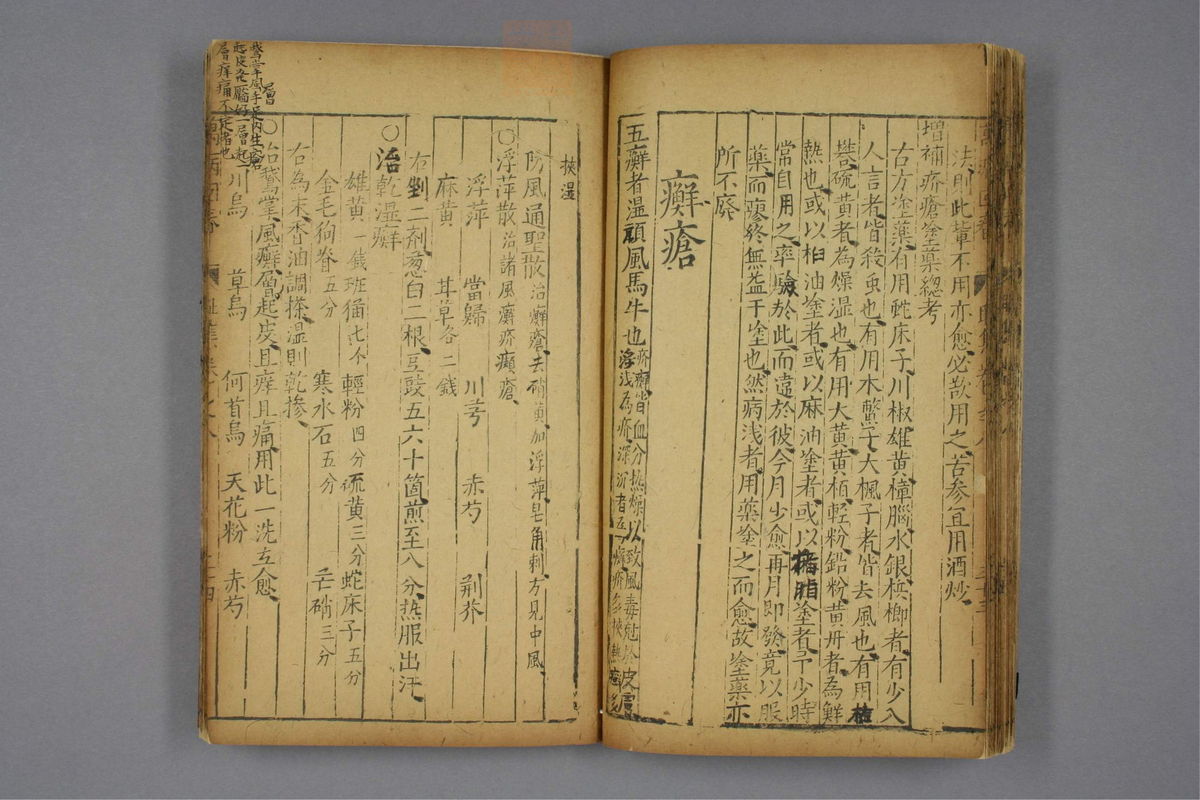 法則此輩不用亦愈必欲用之苦參宜用酒炒
增補疥瘡塗藥總考
古方塗藥有用蛇床子川椒雄黃樟腦水銀梹榔者有少入
人言者皆殺虫也有用木鱉子大楓子者皆去風也有用
礬硫黃者為燥湿也有用大黃黃栢輕粉鉛粉黃丹者為觧
熱也或以桕油塗者或以麻油塗者或以猪脂塗者予少時
常自用之率驗於此而遠於彼今月少愈再月即發竟以服
藥而瘳終無益于塗也然病浅者用藥塗之而愈故塗藥亦
所不廢
癬瘡
五癬者湿頑風馬牛也疥癬皆血分熱燥以致風毒尅於皮膚
浮浅為疥深沉者為癬疥多挾熱癬多
挾湿
防風通聖散治癬瘡去硝黃加浮萍皂角刺方見中風
○浮萍散治諸風癬疥癩瘡
浮萍 當歸 川芎 赤芍 荆芥
麻黃 甘草各二錢
右剉二剤葱白二根豆豉五六十箇煎至八分热服出汗
○治乾湿癬
雄黃一錢班猫七个輕粉四分硫黃三分蛇床子五分
金毛狗脊五分 寒水石五分 芒硝三分
右為末香油調搽湿則乾摻
○治鵞掌風癬層起皮且痒且痛用此一洗立愈
川烏 草烏 何首烏 天花粉 赤芍
鵞掌風手足内生
層痒痛不